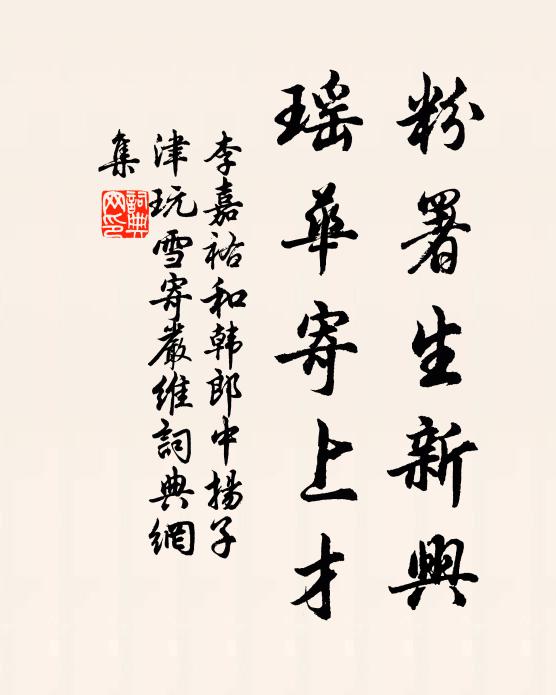 粉署生新興
瑶華寄上才
李嘉祐和韩郎中揚子
津玩雪寄嚴維詞典網
集
詞典
网印